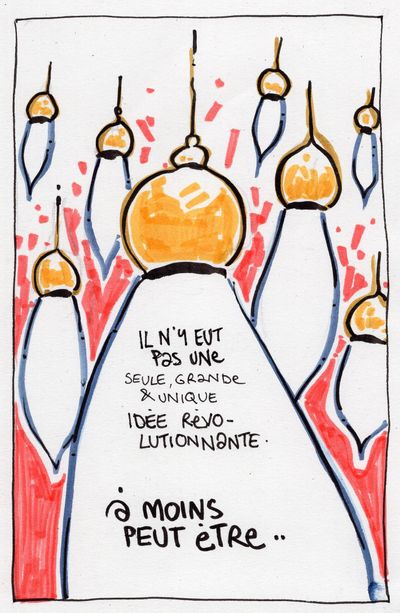 IL N'Y EUT
PAS UNE
SEULE, GRANDE
& UNIQUE
IDÈE RÉVO-
LUTIONNANTE.
À MOINS
PEUT ÈTRE..